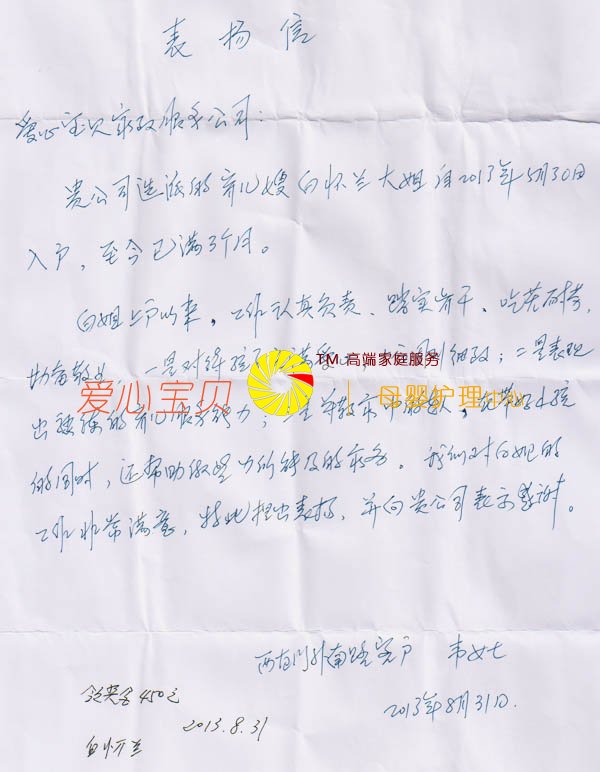 表扬信
爱心宝贝家政服务公司:
贵公司选派的育儿嫂白怀兰大姐自2013年5月30日
入户,至今已满3个月。
白姐上户以来,工作认真负责、踏实肯干、吃苦耐劳,
一是对待孩子满爱心细致;二是表现
TM 高端家庭服务
爱心宝贝 母婴护理
出熟练的育儿服务能力;三是,在带好小孩
的同时,还帮助做些力所能及的家务。我们对白姐的
工作非常满意,特此提出表扬,并向贵公司表示感谢。
西直门外南路客户 韦女士
2013年8月31日.
领奖金450元
2013.8.31
白怀兰